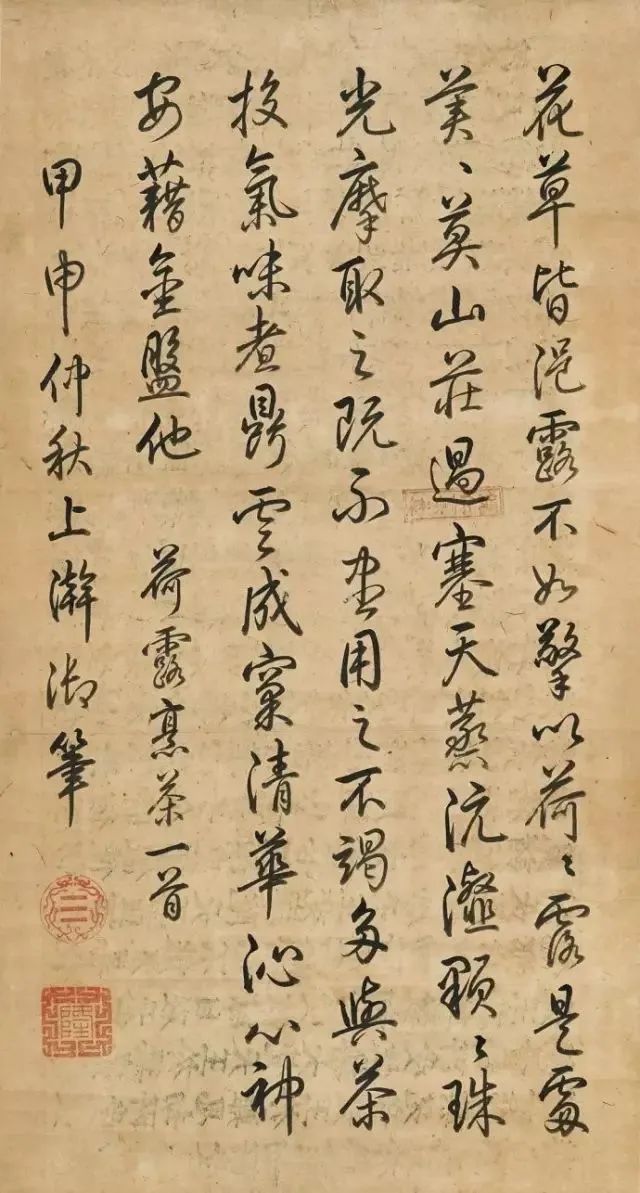 花草皆浥露不如擎以荷〻露是處
美〻莫山莊過塞天蒸沆瀣顆〻珠
光摩取之既不盡用之不竭多與茶
投氣味煮鼎雲成窠清華沁心神
安藉金盤他 荷露烹茶一首
甲申仲秋上澣御筆